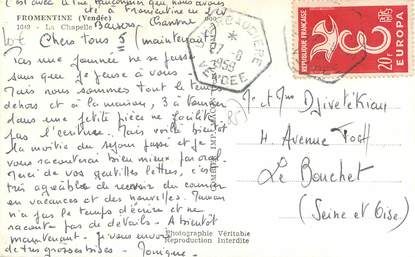 été à Fromentine l'été
FROMENTINE (Vendée)
1049 - La Chapelle
Baisers
Chers Tous 5 (maintenant)
Pas une journée ne se passe
sans que je pense à vous -
Mais nous sommes tout le temps
dehors et à la maison, 3 à
dans une petite pièce ne facilite
pas l'écriture. Mais voilà bientôt
la moitié du séjour passé et je
vous raconterai bien mieux par oral.
Merci de vos gentilles lettres, c'est
très agréable de recevoir du courrier
en vacances et des nouvelles. Maman
n'a pas le temps d'écrire et ne
raconte pas de détails - A bientôt
maintenant. Je vous envoie
de très grosses bises - Monique -
Photographie Véritable
Reproduction Interdite
27 - 8
1958
VENDEE
REPUBLIQUE FRANÇAISE
POSTES
20F
EUROPA
Mr et Mme Djivelekian
4 Avenue Foch
Le Bouchet
(Seine et Oise)